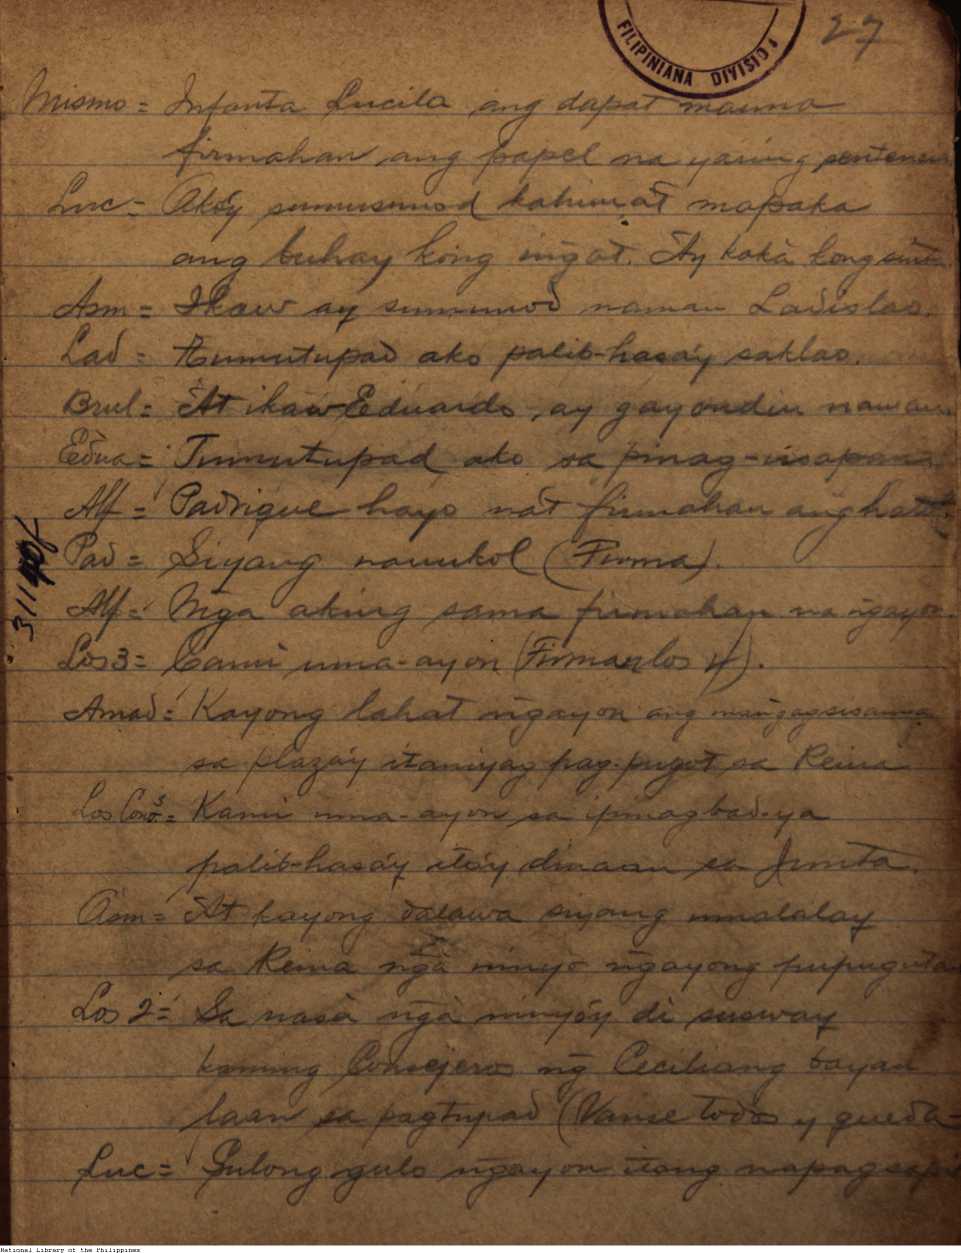 27
FILIPINIANA DIVISION
Mismo = Infanta Lucila ang dapat mauna
firmahan ang papel na yaring sentencia
Luc = Akóy sumusunod kahimat mapaka
ang buhay kong ingat. Ay kaka kong
Asm = Ikaw ay sumunod naman Ladislao.
Lad = Tumutupad ako palib-hasáy saklao.
Brul = At ikaw Eduardo, ay gayondin naman.
Edua = Tumutupad ako sa pinag-usapan
Alf = Padrique hayo nat firmahan ang
Pad = Siyang nauukol (Firma).
Alf = Mga aking sama firmahan na ngayon.
Los 3 = Cami uma-ayon (Firman los 4).
Amad = Kayong lahat ngayon ang
sa plazáy itaniyag pag-pugot sa Reina
Los Cons = Kami uma-ayon sa ipinagbad-ya
palib-hasáy itóy dinaan sa Junta.
Asm = At kayong dalawa siyang umalalay
sa Reina ngà ninyo ngayong pupugutan
Los 2 = Sa nasà ngà ninyóy dì susway
kaming Consejeros ng Ceciliang bayan
laan sa pagtupad (Vanse todos y queda-
Luc = Gulong gulo ngayon itong napagsapit
31140f
National Library of the Philippines